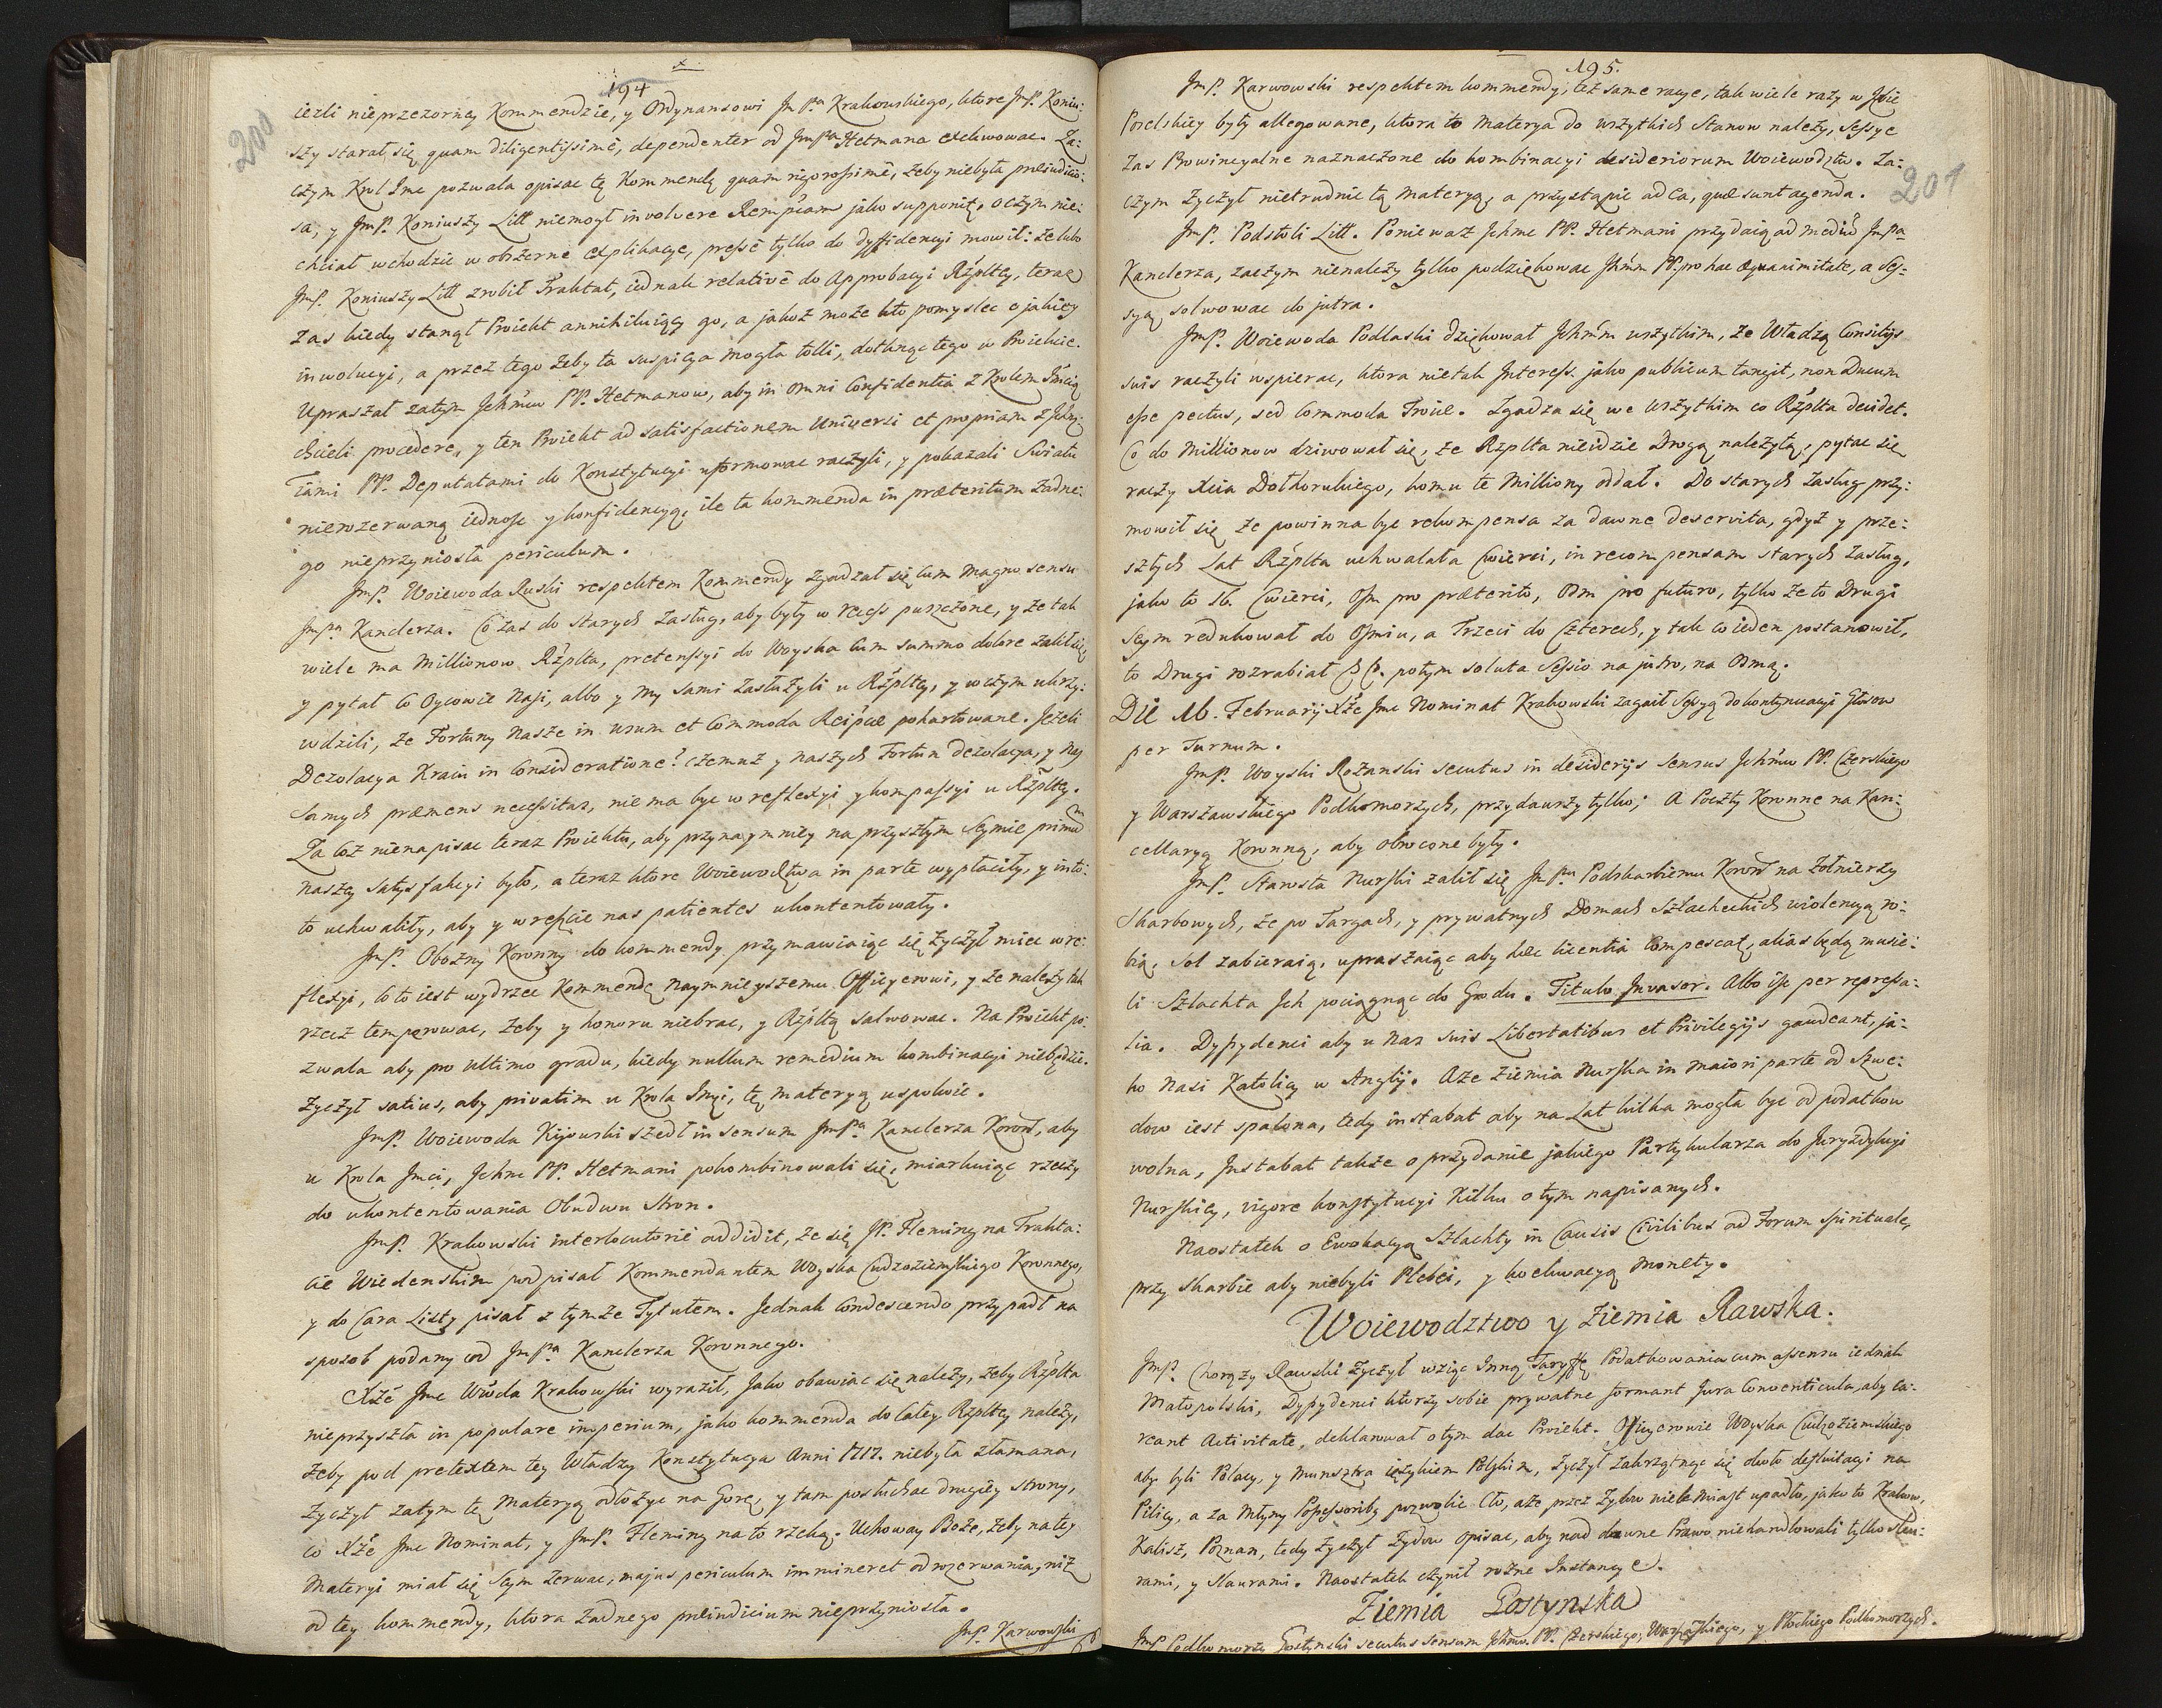 194
200
iezli nieprzezorney Kommendzie, y Ordynansowi JmPa Krakowskiego, ktore JmP. Koniu:
szy starał się quam diligentissimè, dependenter od JmPa Hetmana exekwowac. Za:
czym Krol Jmc pozwala opisac tę Kommendę quam rigorosissimè, żeby niebyła preiudicio:
sa, y JmP. Koniuszy Litt niemogł involvere Rempcam jako supponit, o czym nie:
chciał wchodzic w obszerne explikacye, presse tylko do dyffidencyi mowił: że lubo
JmP. Koniuszy Litt zrobił Traktat, iednak relativè do Approbacyi Rzpltey, teraz
zas kiedy stanął Proiekt annihiluiący go, a jakoż może kto pomyslec o jakiey
inwolucyi, a przez tego żeby ta suspicya mogła tolli, dotknąc tego w Proiekcie.
Upraszał zatym Jchmciow PP. Hetmanow, aby in omni Confidentia z Krolem Jmcią
chcieli procedere, y ten Proiekt ad satisfactionem Universi et propriam z Jchm:
ciami PP. Deputatami do Konstytucyi uformowac raczyli, y pokazali Swiatu
nierozerwaną iednosc y konfidencyą, ile ta kommenda in præteritum żadne:
go nieprzyniosła periculum.
JmP. Woiewoda Ruski respektem Kommendy zgadzał się cum magno sensu
JmPa Kanclerza. Co zas do starych zasług, aby były w recess puszczone, y że tak
wiele ma Millionow Rzplta, pretensyi do Woyska cum summo dolore żalił się
y pytał co Oycowie Nasi, albo y My sami zasłużyli u Rzpltey, y w czym ukrzy:
wdzili, że Fortuny Nasze in usum et Commoda Reipcæ pohartowane. Jeżeli
Dezolacya Kraiu in Consideratione? czemuż y naszych Fortun dezolacya, y Nas
samych præmens necessitas, nie ma byc w reflexyi y kompassyi u Rzpltey.
Za coż nienapisac teraz Proiektu, aby przynaymniey na przyszłym Seymie primum
naszey satysfakcyi było, a teraz ktore Woiewodztwa in parte wypłaciły, y in to:
to uchwaliły, aby y w reszcie nas patientes ukontentowały.
JmP. Obozny Koronny do kommendy przymawiaiąc się życzył miec w re:
flexyi, co to iest wydrzec Kommendę naymnieyszemu Officyerowi, y że należy tak
rzecz temperowac, żeby y honoru niebrac, y Rzpltą salwowac. Na Proiekt po:
zwala aby pro ultimo gradu, kiedy nullum remedium kombinacyi niebędzie.
Życzył satius, aby privatim u Krola Jmci, tę materyą uspokoic.
JmP. Woiewoda Kijowski szedł in sensum JmPa Kanclerza Koron, aby
u Krola Jmci, Jchmc PP. Hetmani pokombinowali się, miarkuiąc rzeczy
do ukontentowania Obudwu Stron.
JmP. Krakowski interlocutoriè addidit, że się JP. Fleming na Trakta:
cie Wiedenskim podpisał Kommendantem Woyska Cudzoziemskiego Koronnego,
y do Cara Listy pisał z tymże Tytułem. Jednak Condescendo przypadł na
sposob podany od JmPa Kanclerza Koronnego.
Xże Jmc Wwda Krakowski wyraził, Jako obawiac się należy, żeby Rzplta
nieprzyszła in populare imperium, jako kommenda do całey Rzpltey należy,
żeby pod pretextem tey Władzy Konstytucya Anni 1717. niebyła złamana,
życzył zatym tę Materyą odłożyc na Gorę, y tam posłuchac drugiey strony,
co Xże Jmc Nominat, y JmP. Fleming na to rzeką. Uchoway Boże, żeby na tey
Materyi miał się Seym zerwac, majus periculum immineret od rozerwania, niż
od tey kommendy, ktora żadnego preiudicium nieprzyniosła.
JmP. Karwowski
195.
201
JmP. Karwowski respektem kommendy, też same racye, tak wiele razy w Jzbie
Poselskiey były allegowane, ktora to Materya do wszytkich Stanow należy, Sessye
zas Prowincyalne naznaczone do kombinacyi desideriorum Woiewodztw. Za:
czym życzył nietrudnic tą materyą, a przystąpic ad ea, quæ sunt agenda.
JmP. Podstoli Litt. Poniewaz Jchmc PP. Hetmani przydaią ad mediũ JmPa
Kanclerza, zaczym nienależy tylko podziękowac Jchmm PP. pro hac æquanimitate, a Ses:
syą solwowac do jutra.
JmP. Woiewoda Podlaski dziękował Jchmm wszytkim, że Władzą Consilijs
suis raczyli wspierac, ktora nietak Interess. jako publicum tangit, non Ducum
esse pectus, sed Commoda Troiæ. Zgadza się we wszytkim co Rzplta decidet.
Co do Millionow dziwował się, że Rzplta nieidzie Drogą należytą, pytac się
raczy Xcia Dołhorukiego, komu te Milliony oddał. Do starych zasług przy:
mowił się że powinna byc rekompensa za dawne deservita, gdyż y prze:
szłych Lat Rzplta uchwalała Cwierci, in recompensam starych zasług,
jako to 16. Cwierci, Osm pro præterito, Osm pro futuro, tylko że to Drugi
Seym redukował do Osmiu, a Trzeci do Czterech, y tak co ieden postanowił,
to Drugi rozrabiał &c. potym soluta Sessio na jutro, na Osmą.
Die 16. Februarij Xże Jmc Nominat Krakowski zagaił Sessyą do kontynuacyi Głosow
per Turnum.
JmP. Woyski Rożanski secutus in desiderijs sensus Jchmw PP. Czerskiego
y Warszawskiego Podkomorzych, przydawszy tylko; A Poczty Koronne na Kan:
cellaryą Koronną, aby obrocone były.
JmP. Starosta Nurski żalił się JmPu Podskarbiemu Koron na Żołnierzy
Skarbowych, że po Targach, y prywatnych Domach Szlacheckich violencyą ro:
bią, Sol zabieraią, upraszaiąc aby hæc licentia Compescat, alias będą musie:
li Szlachta Jch pociągnąc do Grodu. Titulo Invasor. Albo iść per repressa:
lia. Dyssydenci aby u Nas suis Libertatibus et Privilegijs gaudeant, ja:
ko Nasi Katolicy w Anglij. Aże Ziemia Nurska in maiori parte od Szwe:
dow iest spalona, tedy instabat aby na Lat kilka mogła byc od podatkow
wolna, Instabat także o przydanie jakiego Partykularza do Juryzdykcyi
Nurskiey, vigore konstytucyi Kilku o tym napisanych.
Naostatek o Ewokacyą Szlachty in Causis Civilibus ad Forum Spirituale,
przy Skarbie aby niebyli Plebei, y koekwacyą Monety.
Woiewodztwo y Ziemia Rawska.
JmP. Chorąży Rawski życzył wziąc Inną Taryffę Podatkowania cum assensu iednak
Małopolski, Dyssydenci ktorzy sobie prywatne formant Jura Conventicula, aby ca:
reant Activitate, deklarował o tym dac Proiekt. Officyerowie Woyska Cudzoziemskiego
aby byli Polacy, y Munsztra ięzykiem Polskim, życzył zakrzątnąc się około defluitacyi na
Pilicy, a za Młyny Possessoriby pozwolic Cło, aże przez Żydow wiele Miast upadło, jako to Krakow,
Kalisz, Poznan, tedy życzył Żydow opisac, aby nad dawne Prawo niehandlowali tylko
rami, y Skurami. Naostatek czynił rożne Instancye.
Ziemia Gostynska
JmP. Podkomorzy Gostynski secutus sensum Jchmw. PP. Czerskiego, Warszaskiego, y Płockiego Podkomorzych.